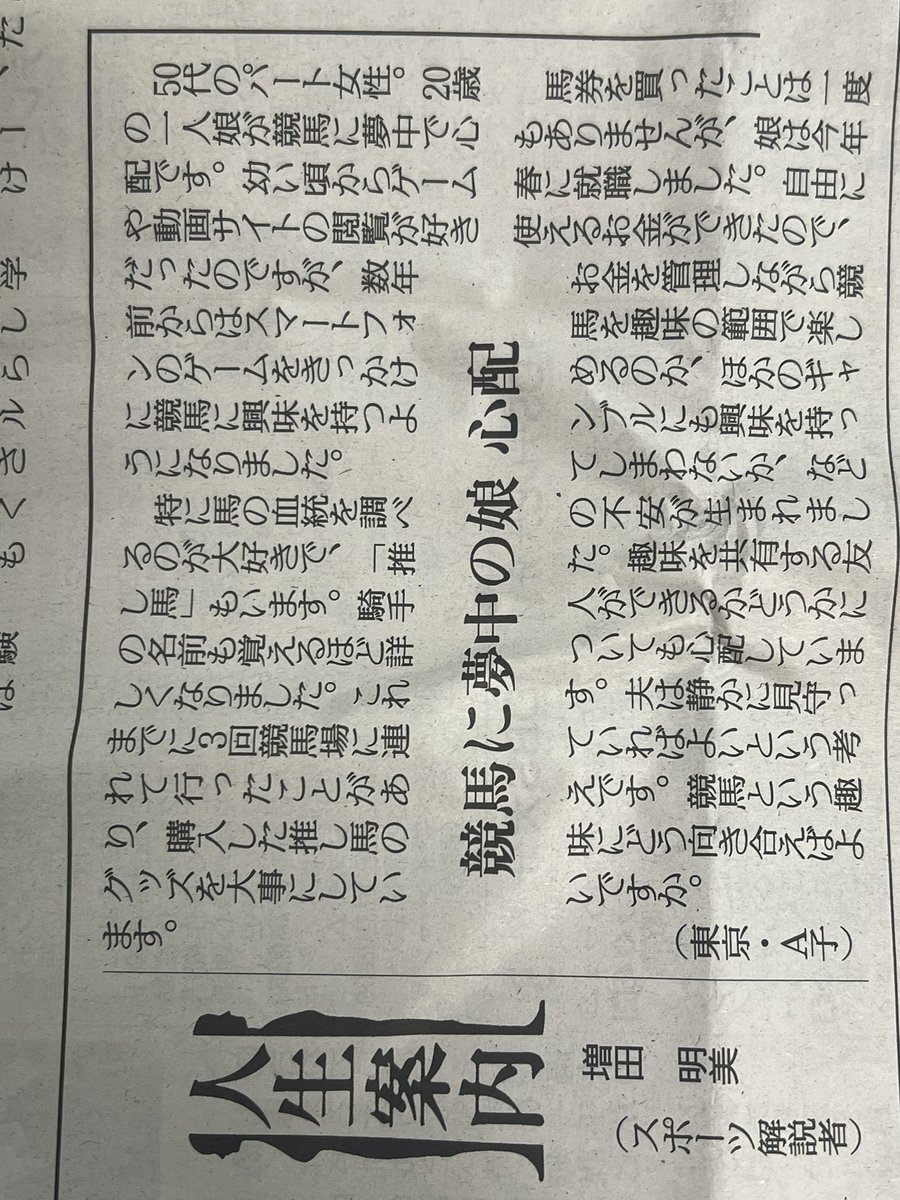 競馬に夢中の娘 心配
50代のパート女性。20歳
の一人娘が競馬に夢中で心
配です。幼い頃からゲーム
や動画サイトの閲覧が好き
だったのですが、数年
前からはスマートフォ
ンのゲームをきっかけ
に競馬に興味を持つよ
うになりました。
特に馬の血統を調べ
るのが大好きで、「推
し馬」もいます。騎手
の名前も覚えるほど詳
しくなりました。これ
までに3回競馬場に連
れて行ったことがあ
り、購入した推し馬の
グッズを大事にしてい
ます。
馬券を買ったことは一度
もありませんが、娘は今年
春に就職しました。自由に
使えるお金ができたので、
お金を管理しながら競
馬を趣味の範囲で楽し
めるのか、ほかのギャ
ンブルにも興味を持っ
てしまわないか、など
の不安が生まれまし
た。趣味を共有する友
人ができるかどうかに
ついても心配していま
す。夫は静かに見守っ
ていればよいという考
えです。競馬という趣
味にどう向き合えばよ
いですか。
(東京・A子)
人生案内
増田 明美
(スポーツ解説者)